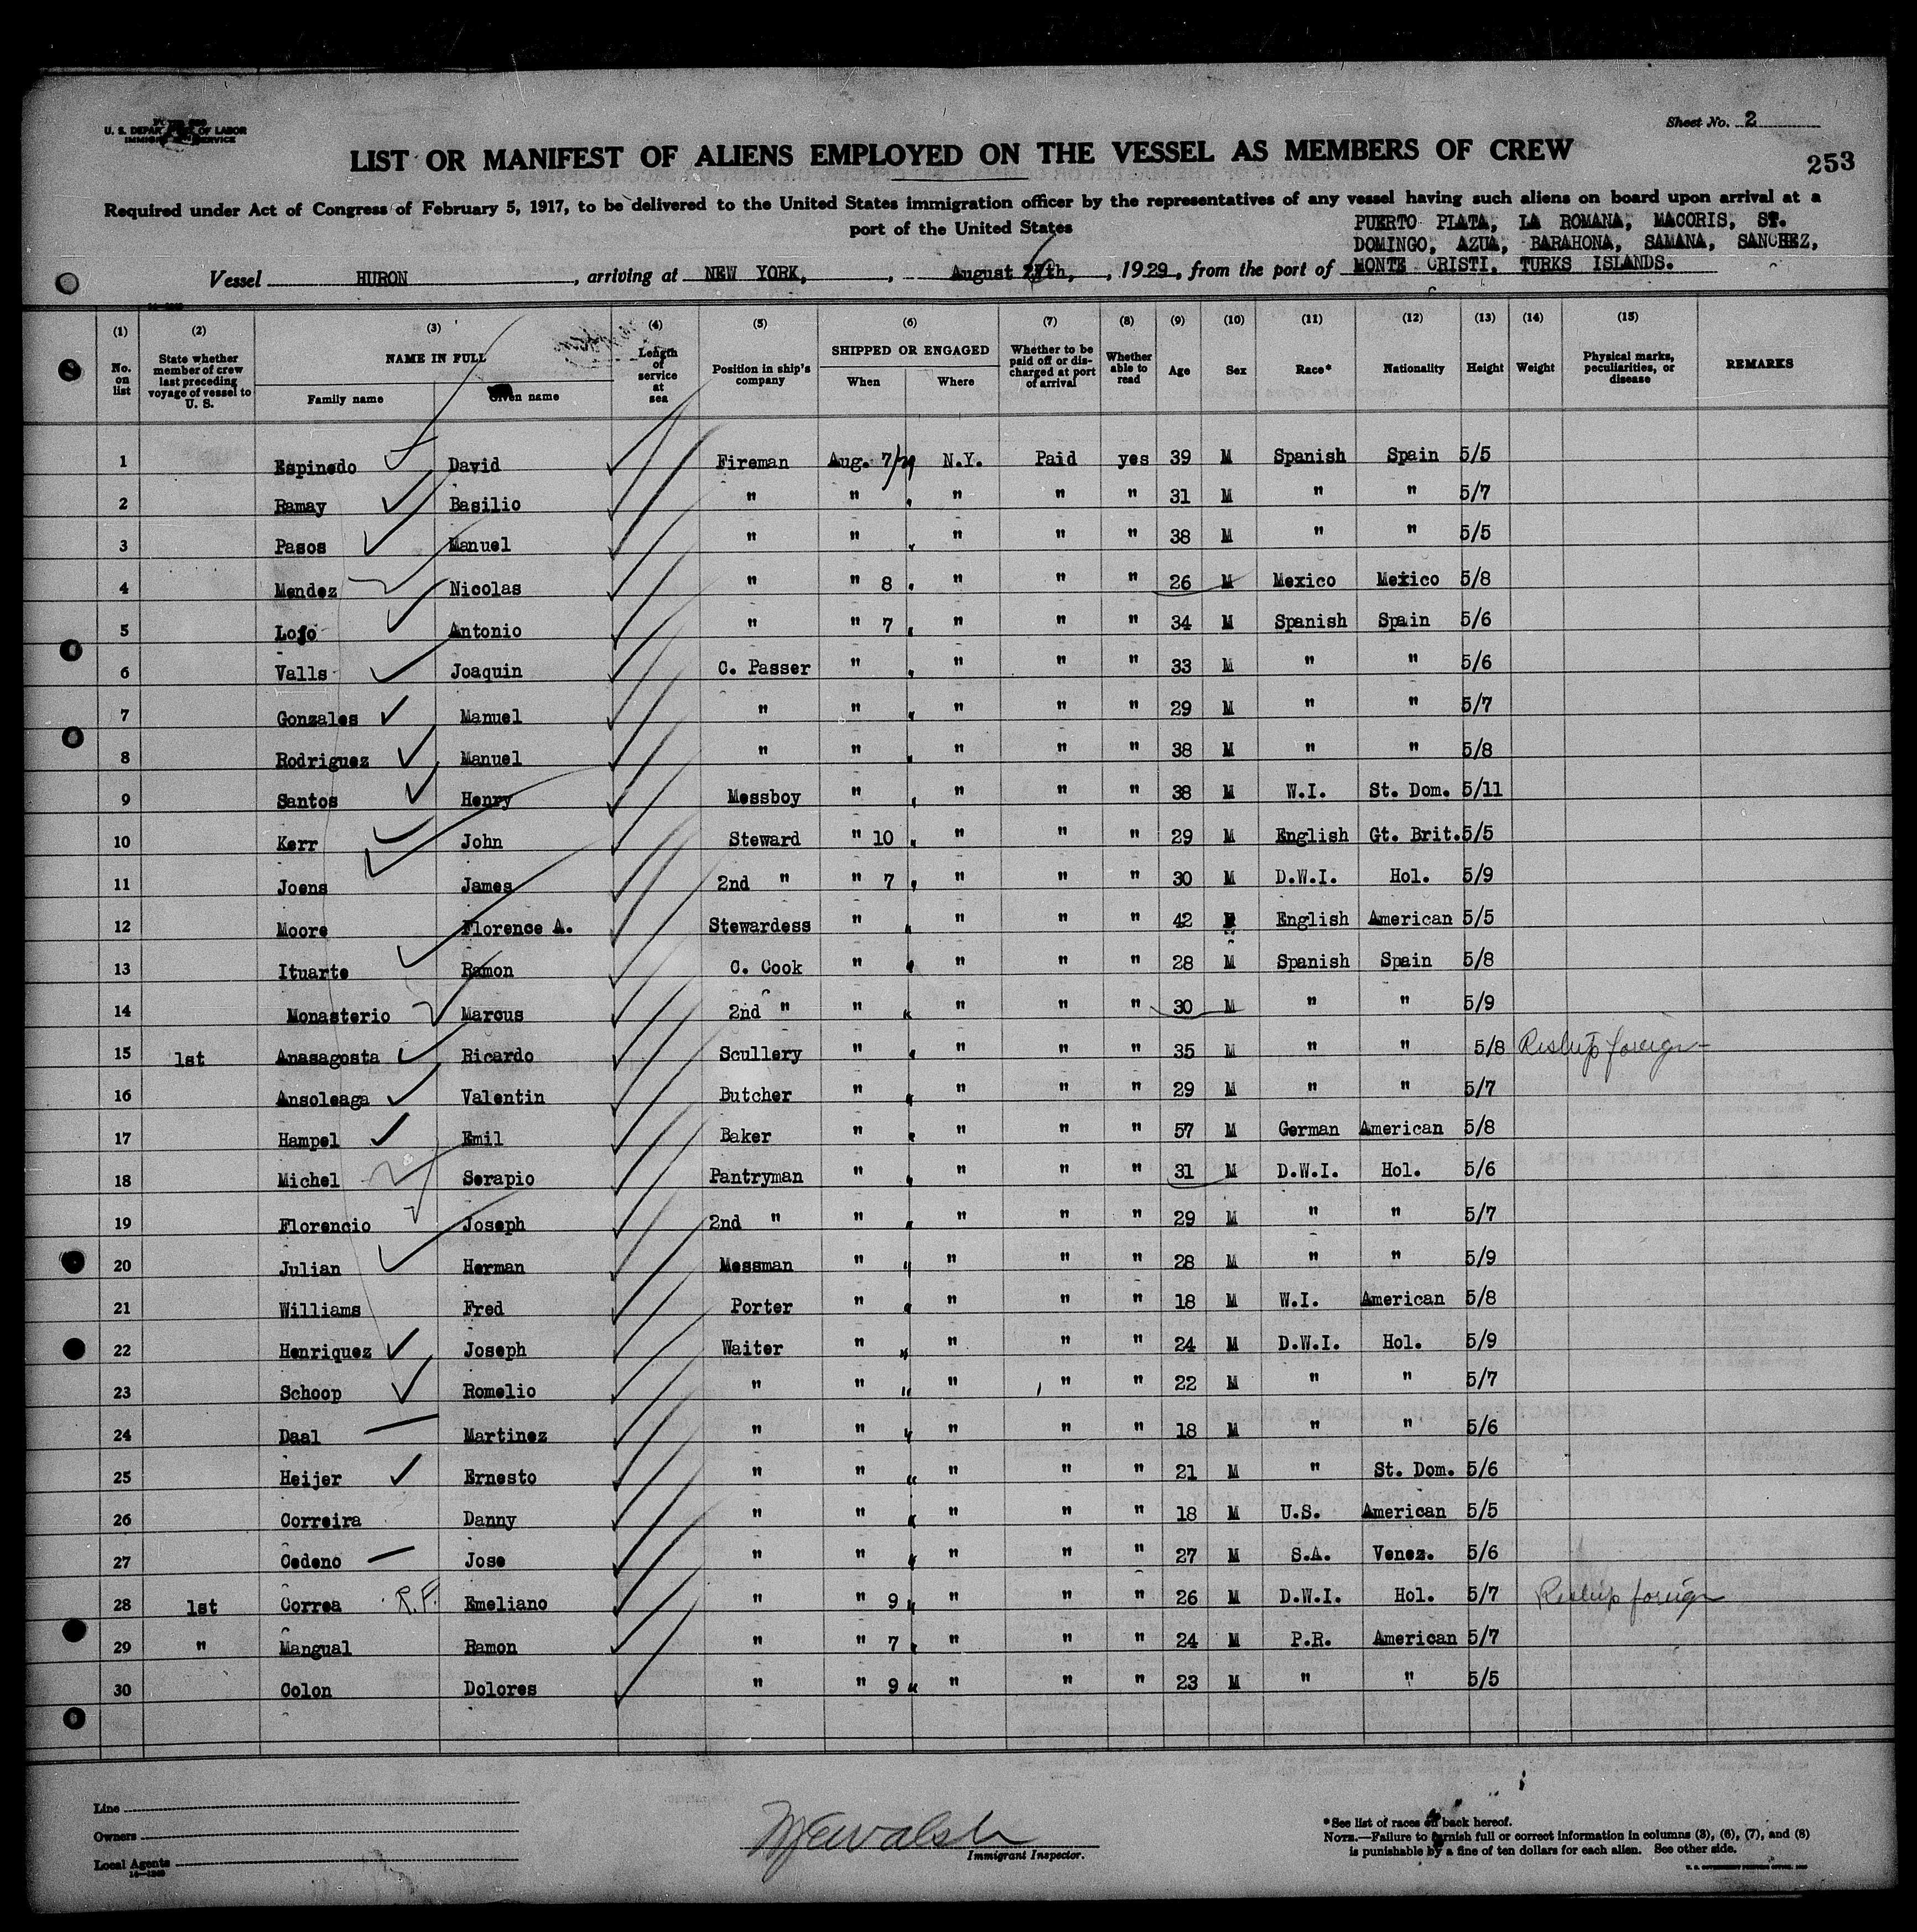 U. S. DEPARTMENT OF LABOR
IMMIGRATION SERVICE
Sheet No. 2
LIST OR MANIFEST OF ALIENS EMPLOYED ON THE VESSEL AS MEMBERS OF CREW
253
Required under Act of Congress of February 5, 1917, to be delivered to the United States immigration officer by the representatives of any vessel having such aliens on board upon arrival at a
port of the United States
PUERTO PLATA, LA ROMANA, MACORIS, ST.
DOMINGO, AZUA, BARAHONA, SAMANA, SANCHEZ,
Vessel HURON, arriving at NEW YORK, August 26th, 1929, from the port of MONTE CRISTI, TURKS ISLANDS.
(1) (2) (3) (4) (5) (6) (7) (8) (9) (10) (11) (12) (13) (14) (15)
No. on list State whether member of crew last preceding voyage of vessel to U. S. NAME IN FULL Family name Given name Length of service at sea Position in ship's company SHIPPED OR ENGAGED When Where Whether to be paid off or discharged at port of arrival Whether able to read Age Sex Race* Nationality Height Weight Physical marks, peculiarities, or disease REMARKS
1 Espinedo David Fireman Aug. 7/29 N.Y. Paid yes 39 M Spanish Spain 5/5
2 Ramay Basilio " " " " " " 31 M " " 5/7
3 Pasos Manuel " " " " " " 38 M " " 5/5
4 Mendez Nicolas " " 8 " " " " 26 M Mexico Mexico 5/8
5 Lojo Antonio " " 7 " " " " 34 M Spanish Spain 5/6
6 Valls Joaquin C. Passer " " " " " 33 M " " 5/6
7 Gonzales Manuel " " " " " " 29 M " " 5/7
8 Rodriguez Manuel " " " " " " 38 M " " 5/8
9 Santos Henry Messboy " " " " " 38 M W.I. St. Dom. 5/11
10 Kerr John Steward " 10 " " " " 29 M English Gt. Brit. 5/5
11 Joens James 2nd " " 7 " " " " 30 M D.W.I. Hol. 5/9
12 Moore Florence A. Stewardess " " " " " 42 F English American 5/5
13 Ituarte Ramon C. Cook " " " " " 28 M Spanish Spain 5/8
14 Monasterio Marcus 2nd " " " " " " 30 M " " 5/9
15 1st Anasagosta Ricardo Scullery " " " " " 35 M " " 5/8 Reship foreign
16 Ansoleaga Valentin Butcher " " " " " 29 M " " 5/7
17 Hampel Emil Baker " " " " " 57 M German American 5/8
18 Michel Serapio Pantryman " " " " " 31 M D.W.I. Hol. 5/6
19 Florencio Joseph 2nd " " " " " " 29 M " " 5/7
20 Julian Herman Messman " " " " " 28 M " " 5/9
21 Williams Fred Porter " " " " " 18 M W.I. American 5/8
22 Henriquez Joseph Waiter " " " " " 24 M D.W.I. Hol. 5/9
23 Schoop Romelio " " " " " " 22 M " " 5/7
24 Daal Martinez " " " " " " 18 M " " 5/6
25 Heijer Ernesto " " " " " " 21 M " St. Dom. 5/6
26 Correira Danny " " " " " " 18 M U.S. American 5/5
27 Cedeno Jose " " " " " " 27 M S.A. Venez. 5/6
28 1st Correa R.F. Emeliano " " 9 " " " " 26 M D.W.I. Hol. 5/7 Reship foreign
29 " Mangual Ramon " " 7 " " " " 24 M P.R. American 5/7
30 Colon Dolores " " 9 " " " " 23 M " " 5/5
Line
Owners
Local Agents
14—1240
Walsh
Immigrant Inspector.
*See list of races on back hereof.
NOTE.—Failure to furnish full or correct information in columns (3), (6), (7), and (8)
is punishable by a fine of ten dollars for each alien. See other side.